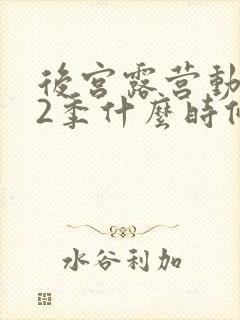 後宮露营動
2季什麼時
水谷利加